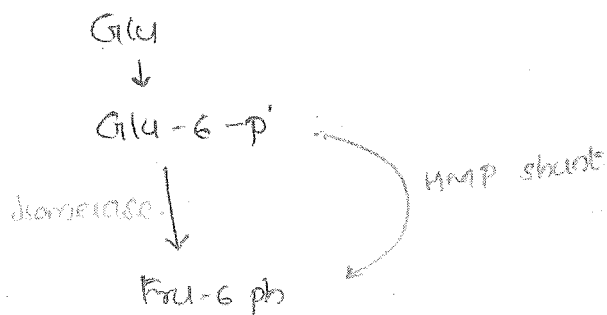 Glu
Glu-6-p
HMP shunt
Isomerase.
Fru-6 ph